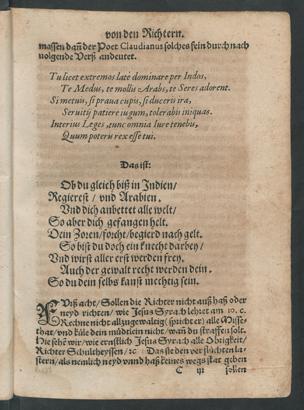 von den Richtern.
massen dañ der Poet Claudianus solches fein durch nach
volgende Verß andeutet.
Tu licet extremos latè dominare per Indos,
Te Medus, te mollis Arabs, te Seres adorent.
Si metuis, si prava cupis, si duceris ira,
Servitij patiere iugum, tolerabis iniquas.
Interius Leges, tunc omnia Iure tenebis,
Quum poteris rex esse tui.
Das ist:
Ob du gleich biß in Indien/
Regierest / vnd Arabien.
Vnd dich anbettet alle welt/
So aber dich gefangen helt.
Dein Zoren/forcht/begierd nach gelt.
So bist du doch ein knecht darbey/
Vnd wirst aller erst werden frey.
Auch der gewalt recht werden dein.
So du dein selbs kanst mechtig sein.
Fürs acht/ Sollen die Richter nicht auß haß oder
neyd richten/ wie Jesus Syrach lehret am 10. c.
Rechne nicht allzugewaltig (spricht er) alle Misse-
that/ vnd küle dein mütlein nicht/ wañ du straffen solt.
Hie sehē wir/ wie ernstlich Jesus Syrach alle Obrigkeit/
Richter Schultheyssen/ ꝛc Das sie den
stern/ als nemlich neyd vnnd haß keines wegs stat geben
C iij sollen